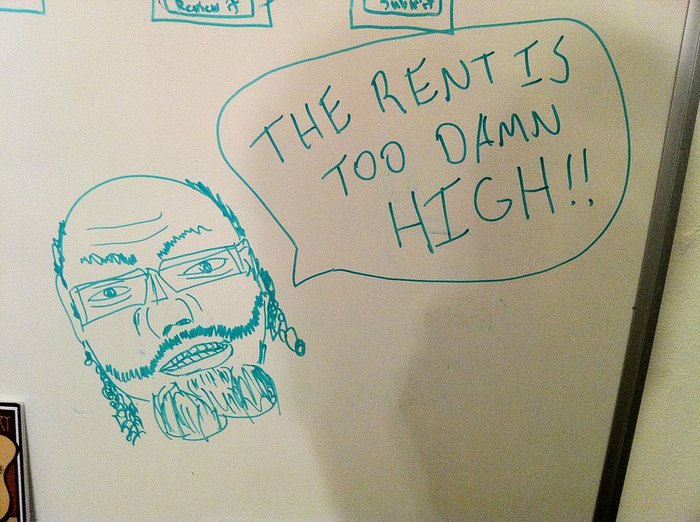 Review it
Submit it
THE RENT IS
TOO DAMN
HIGH!!